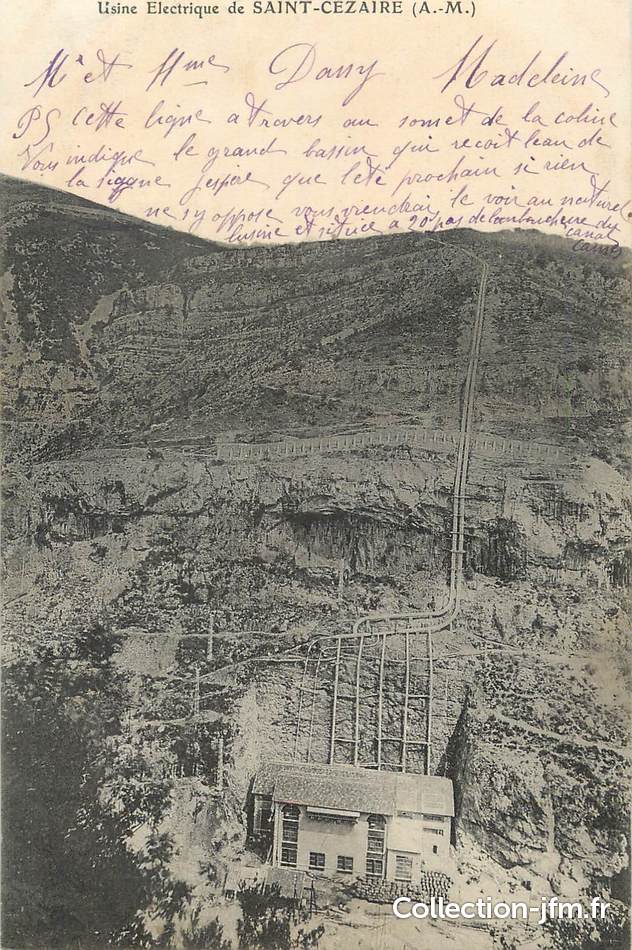 Usine Electrique de SAINT-CEZAIRE (A.-M.)
Mr et Mme Dany Madeleine
PS Cette ligne a travers au somet de la coline
Vous indique le grand bassin qui recoit leau de
la sigque jespere que lété prochain si rien
ne sy oppose vous viendrai le voir au naturel
lusine et situee a 20 pas de lembouchure du
canal
Collection-jfm.fr